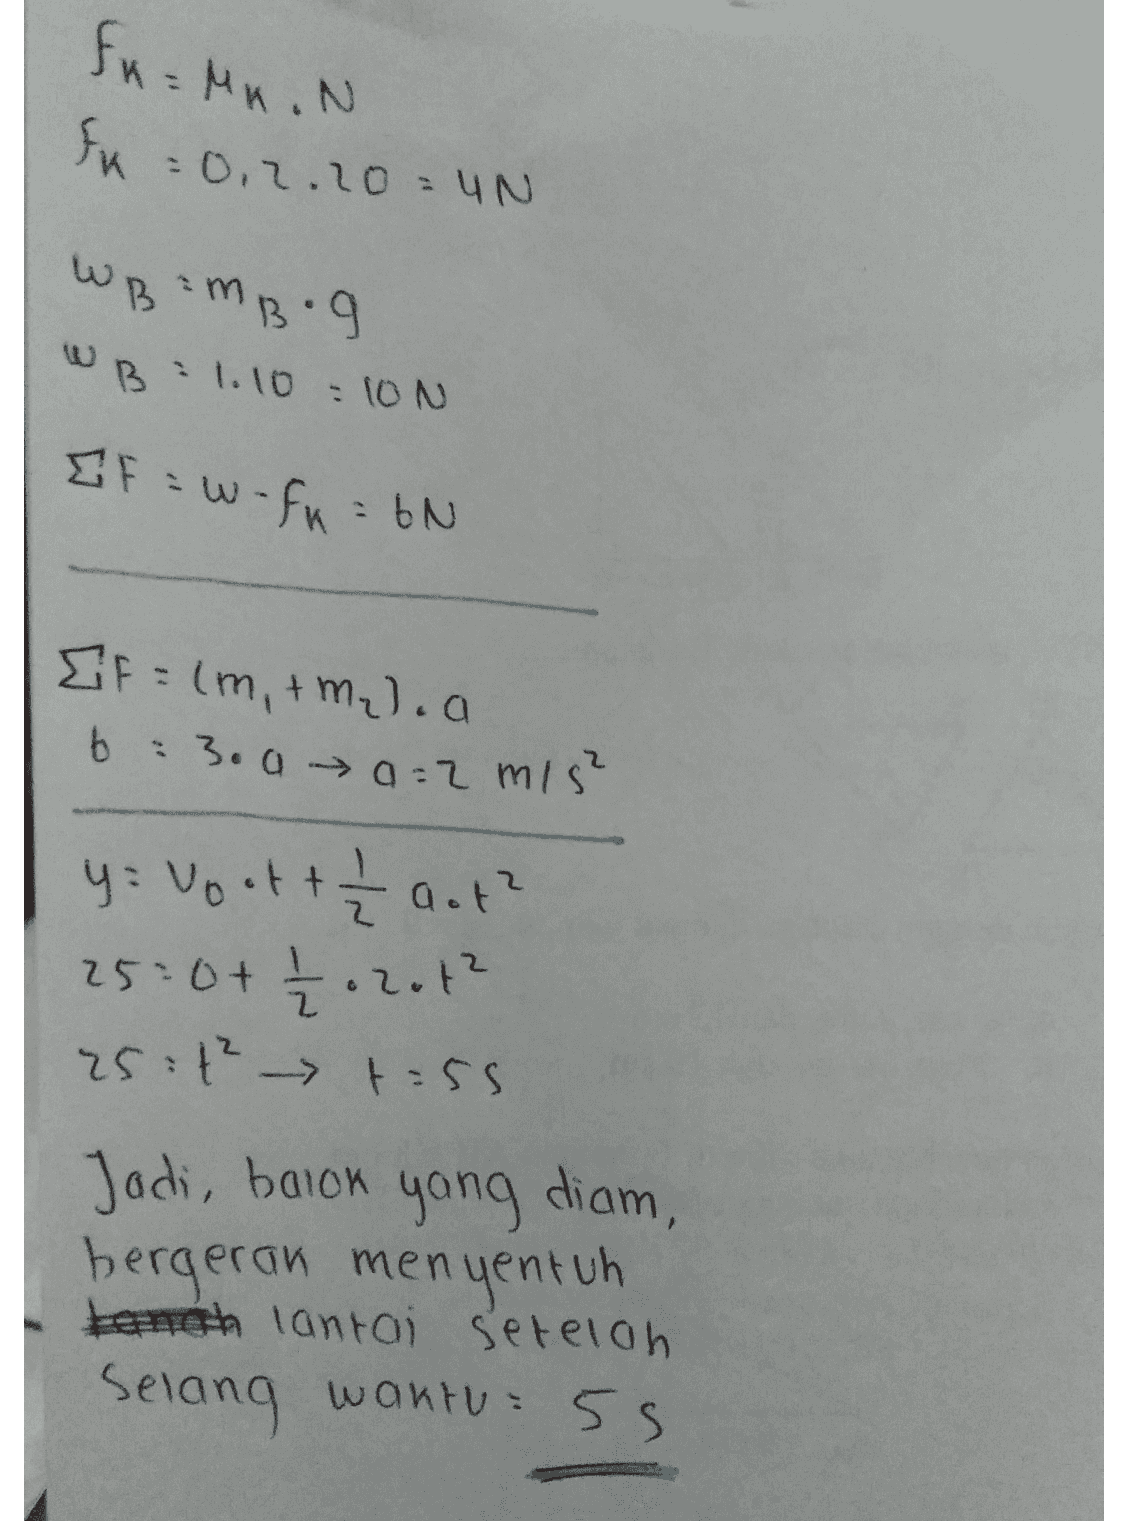 fk = μk . N
fk = 0,2 . 20 = 4N
wB = mB . g
wB = 1.10 = 10 N
ΣF = w - fk = 6N
ΣF = (m₁ + m₂) . a
6 = 3. a → a = 2 m/s²
y = v₀ . t + 1/2 a . t²
25 = 0 + 1/2 . 2 . t²
25 = t² → t = 5 s
Jadi, balok yang diam,
bergerak menyentuh
tanah lantai setelah
selang waktu = 5 s